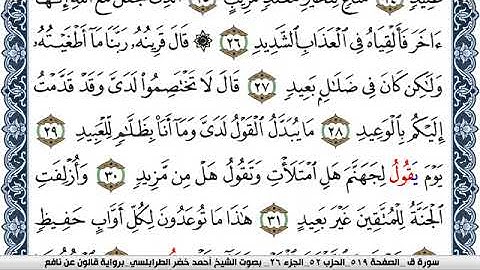 عَنِيدٍ ٢٤ مَّنَّاعٍ لِّلْخَيْرِ مُعْتَدٍ مُّرِيبٍ ٢٥ اِ۬لذِے جَعَلَ مَعَ اَ۬للَّهِ إِلَٰهاً
ءَاخَرَ فَأَلْقِيَٰهُ فِے اِ۬لْعَذَابِ اِ۬لشَّدِيدِ ٢٦ ۞ قَالَ قَرِينُهُۥ رَبَّنَا مَآ أَطْغَيْتُهُۥ
وَلَٰكِن كَانَ فِے ضَلَٰلِۢ بَعِيدٍ ٢٧ قَالَ لَا تَخْتَصِمُواْ لَدَيَّ وَقَدْ قَدَّمْتُ
إِلَيْكُم بِالْوَعِيدِ ٢٨ مَا يُبَدَّلُ اُ۬لْقَوْلُ لَدَيَّ وَمَآ أَنَا۠ بِظَلَّٰمٍ لِّلْعَبِيدِ ٢٩
يَوْمَ يَقُولُ لِجَهَنَّمَ هَلِ اِ۪مْتَلَأْتِ وَتَقُولُ هَلْ مِن مَّزِيدٍ ٣٠ وَأُزْلِفَتِ
اِ۬لْجَنَّةُ لِلْمُتَّقِينَ غَيْرَ بَعِيدٍ ٣١ هَٰذَا مَا تُوعَدُونَ لِكُلِّ أَوَّابٍ حَفِيظٍ
سورة ق _ الصفحة ٥١٩ _ الحزب ٥٢ _ الجزء ٢٦ _ بصوت الشيخ أحمد خضر الطرابلسي _ برواية قالون عن نافع